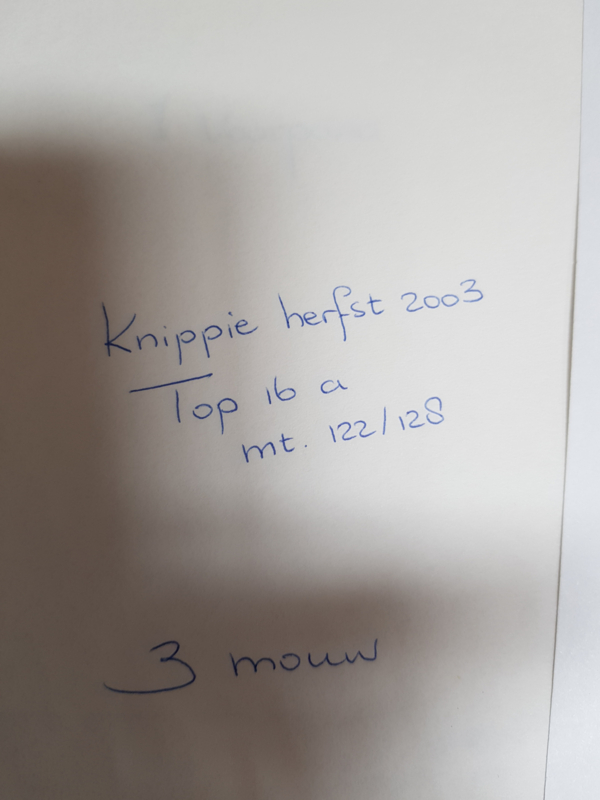 Knippie herfst 2003
Top 16 a
mt. 122/128
3 mouw